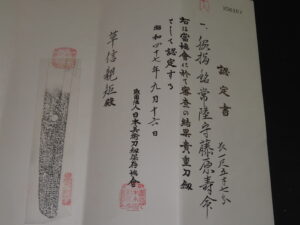 認定書
一、脇指 銘 常陸守藤原寿命
長一尺五寸七分
右は當協會に於て審査の結果貴重刀剣
として認定する
昭和四十七年九月十六日
財團法人日本美術刀剣保存協會
草信親柾殿